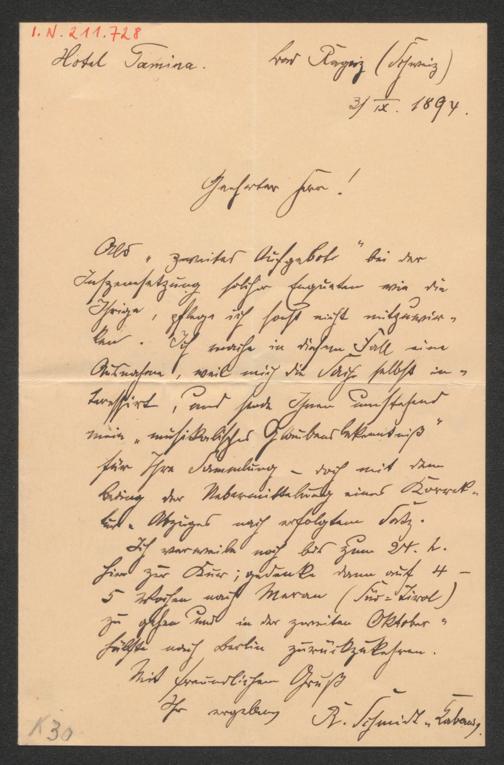 I.N. 211.728
Hotel Tamina.
Bad Ragaz (Schweiz)
3/IX. 1894.
Geehrter Herr!
Als „zweites Aufgebot" bei der
Inszenesetzung solcher Enquêten wie die
Ihrige, pflege ich sonst nicht mitzuwir-
ken. Ich mache in diesem Fall eine
Ausnahme, weil mich die Sache selbst in-
teressirt, und sende Ihnen umstehend
mein „musikalisches Glaubensbekenntniß"
für Ihre Sammlung – doch mit dem
Beding der Uebermittelung eines Korrek-
tur-Abzuges nach erfolgtem Satz.
Ich verweile noch bis zum 24. h.
hier zur Kur; gedenke dann auf 4 –
5 Wochen nach Meran (Süd-Tirol)
zu gehen und in der zweiten Oktober-
hälfte nach Berlin zurückzukehren.
Mit freundlichem Gruß
Ihr ergebener
R. Schmidt-Cabanis.
K30